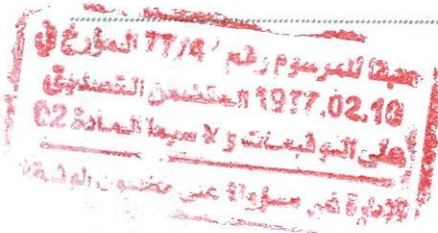 طبقا للمرسوم رقم 77/4 المؤرخ في
1977.02.10 المتضمن التصديق
على التوقيعات و لا سيما المادة 02
الإدارة غير مسؤولة عن مضمون الوثيقة